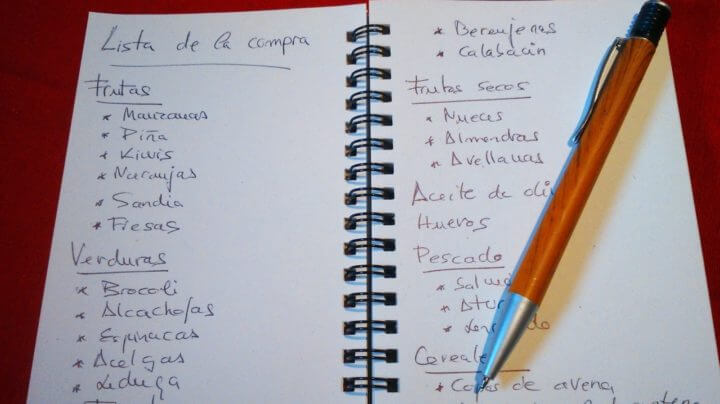 Lista de la compra
Frutas
* Manzanas
* Piña
* Kiwis
* Naranjas
* Sandia
* Fresas
Verduras
* Brocoli
* Alcachofas
* Espinacas
* Acelgas
* Lechuga
* Berenjenas
* Calabacín
Frutos secos
* Nueces
* Almendras
* Avellanas
Aceite de
Huevos
Pescado
*
*
*
* de avena